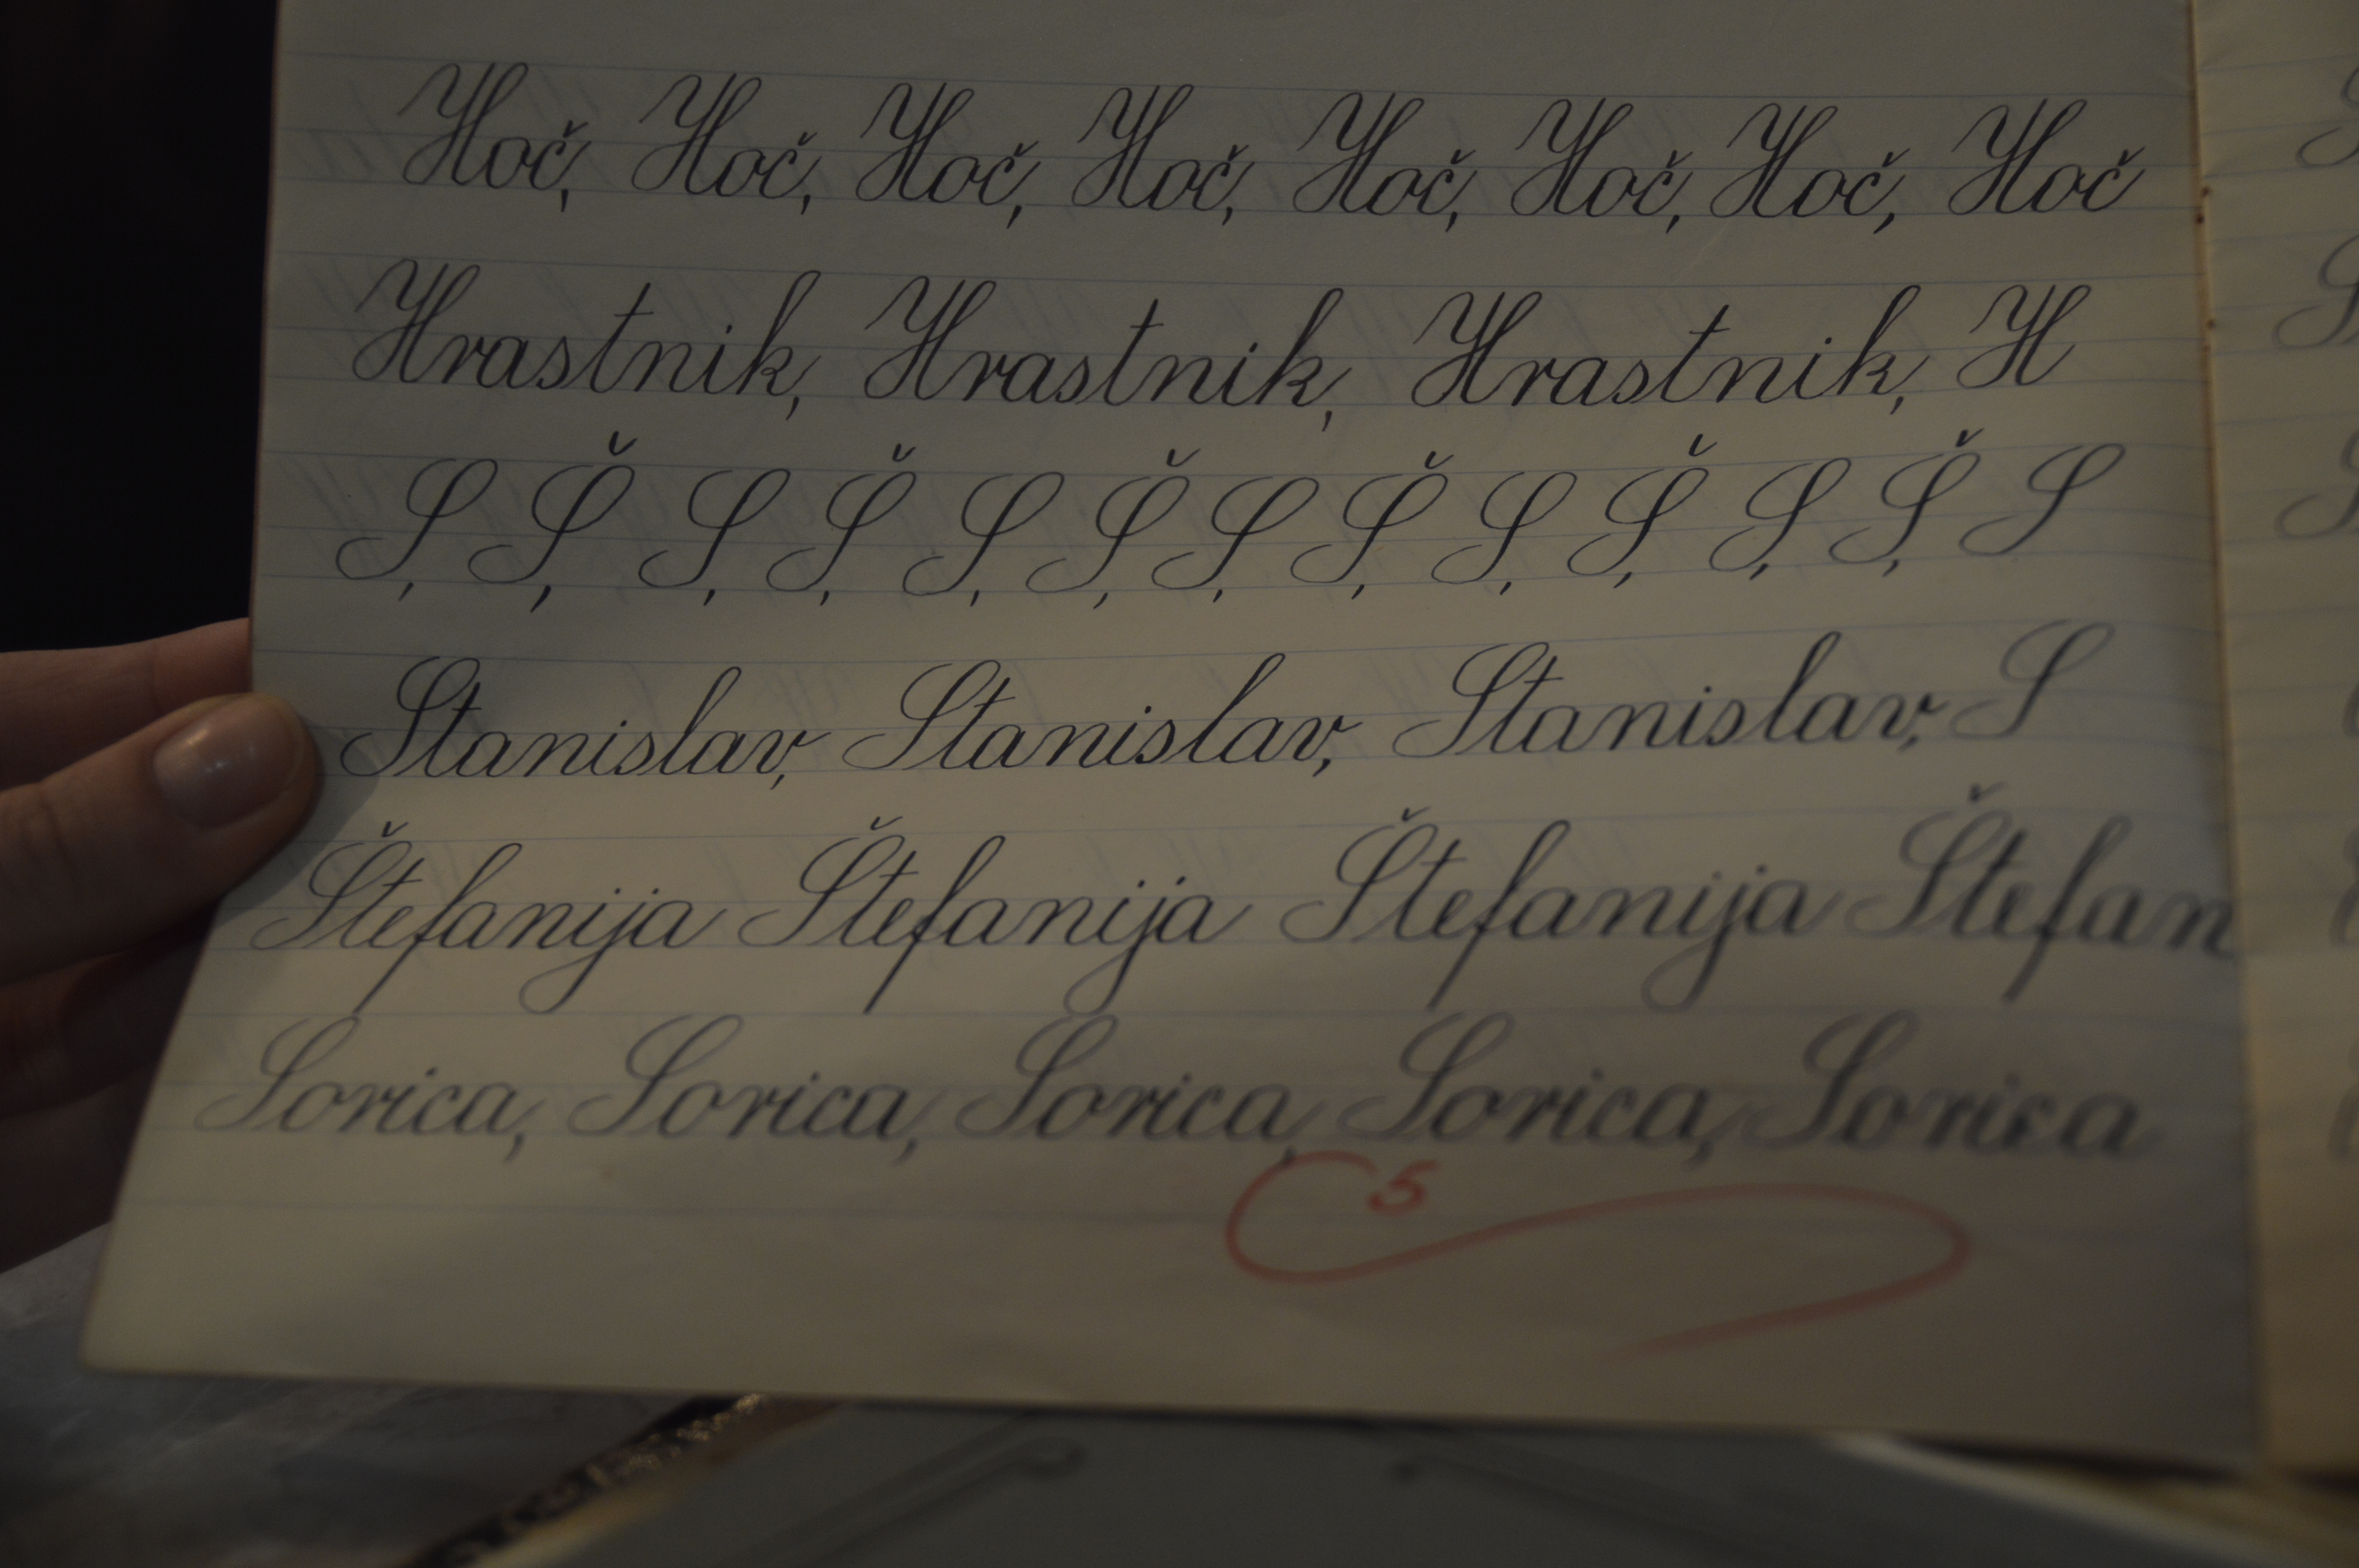 Hoč, Hoč, Hoč, Hoč, Hoč, Hoč, Hoč, Hoč
Hrastnik, Hrastnik, Hrastnik, H
S, Š, S, Š, S, Š, S, Š, S, Š, S, Š, S
Stanislav, Stanislav, Stanislav, S
Štefanija Štefanija Štefanija Štefan
Sorica, Sorica, Sorica, Sorica, Sorica
5